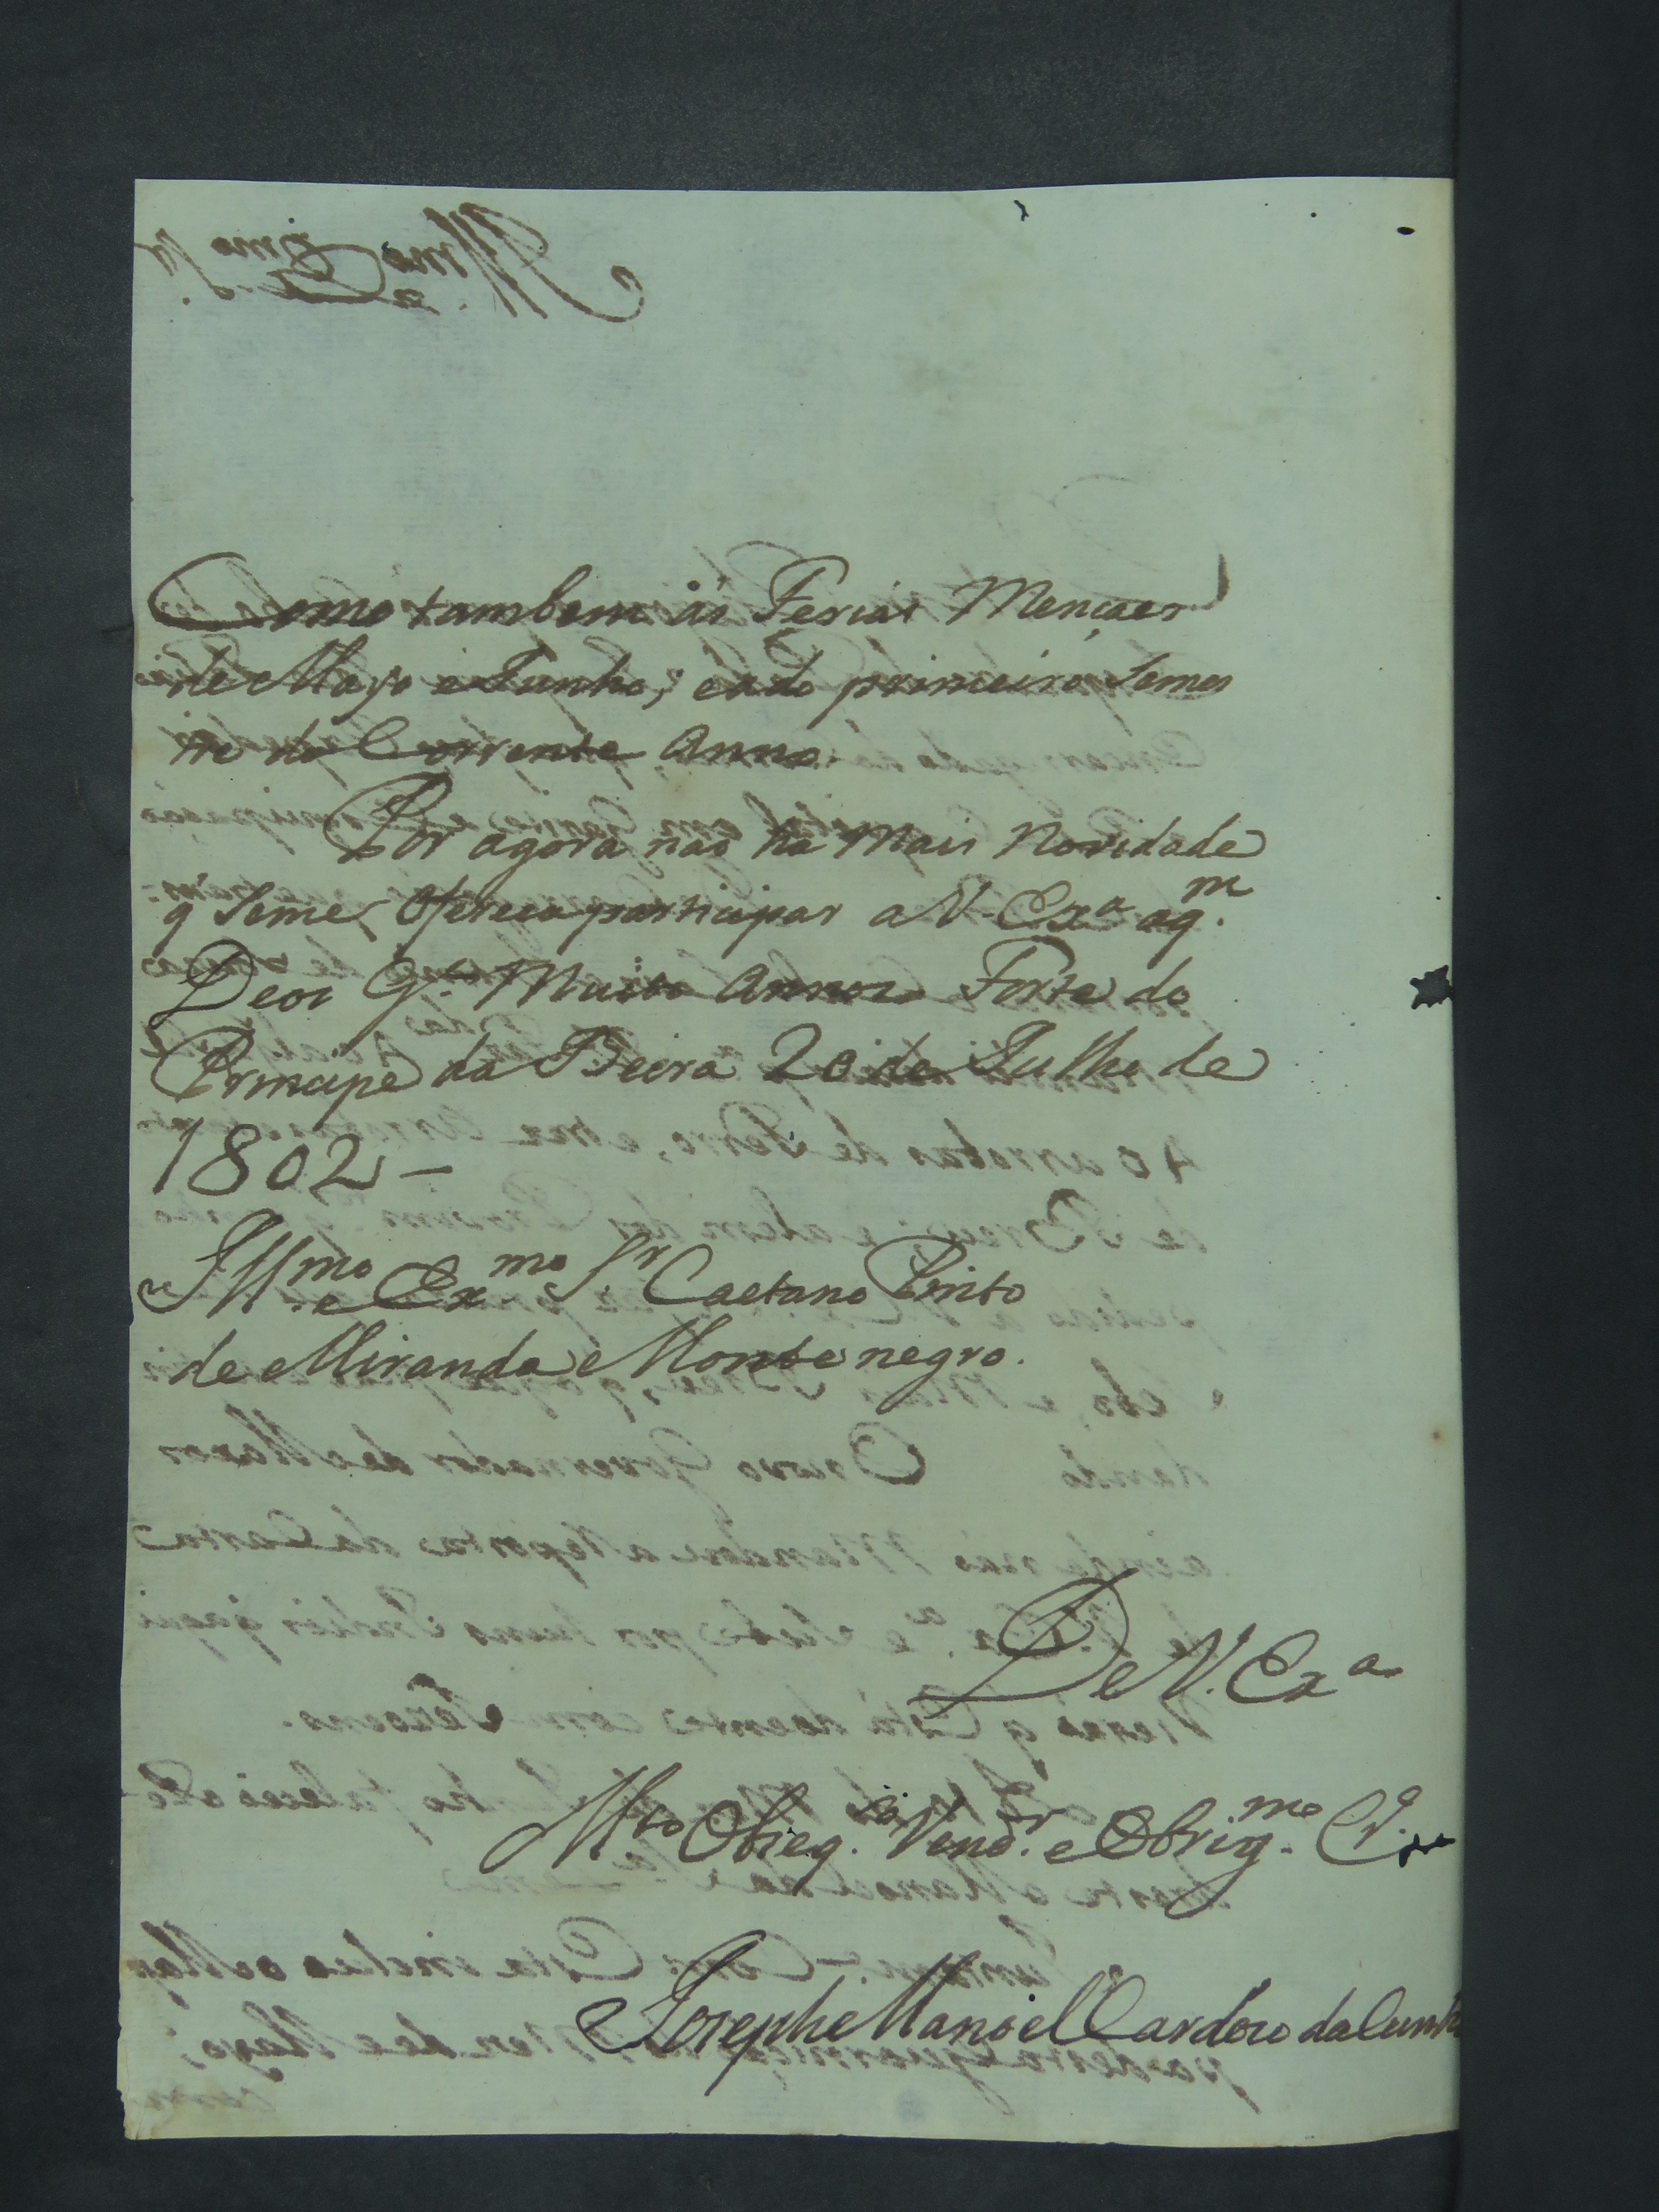 Como tambem ás Ferias Mençaes
de Mayo e Junho; eado primeiro Semes
tre do Corrente Anno.
Por agora não ha Mais Novidade
q̃ Seme Ofereça participar a V. Exa aq.m
Deos G.e Muitos Annos Forte do
Principe da Beira 20 de Julho de
1802 -
Illmo. e Exmo. Sr. Caetano Pinto
de Miranda Montenegro.
De V. Exa
Mto Obseq. Vend.r e Obrig.mo Cr.o
Josephe Manoel Cardozo da Cunha